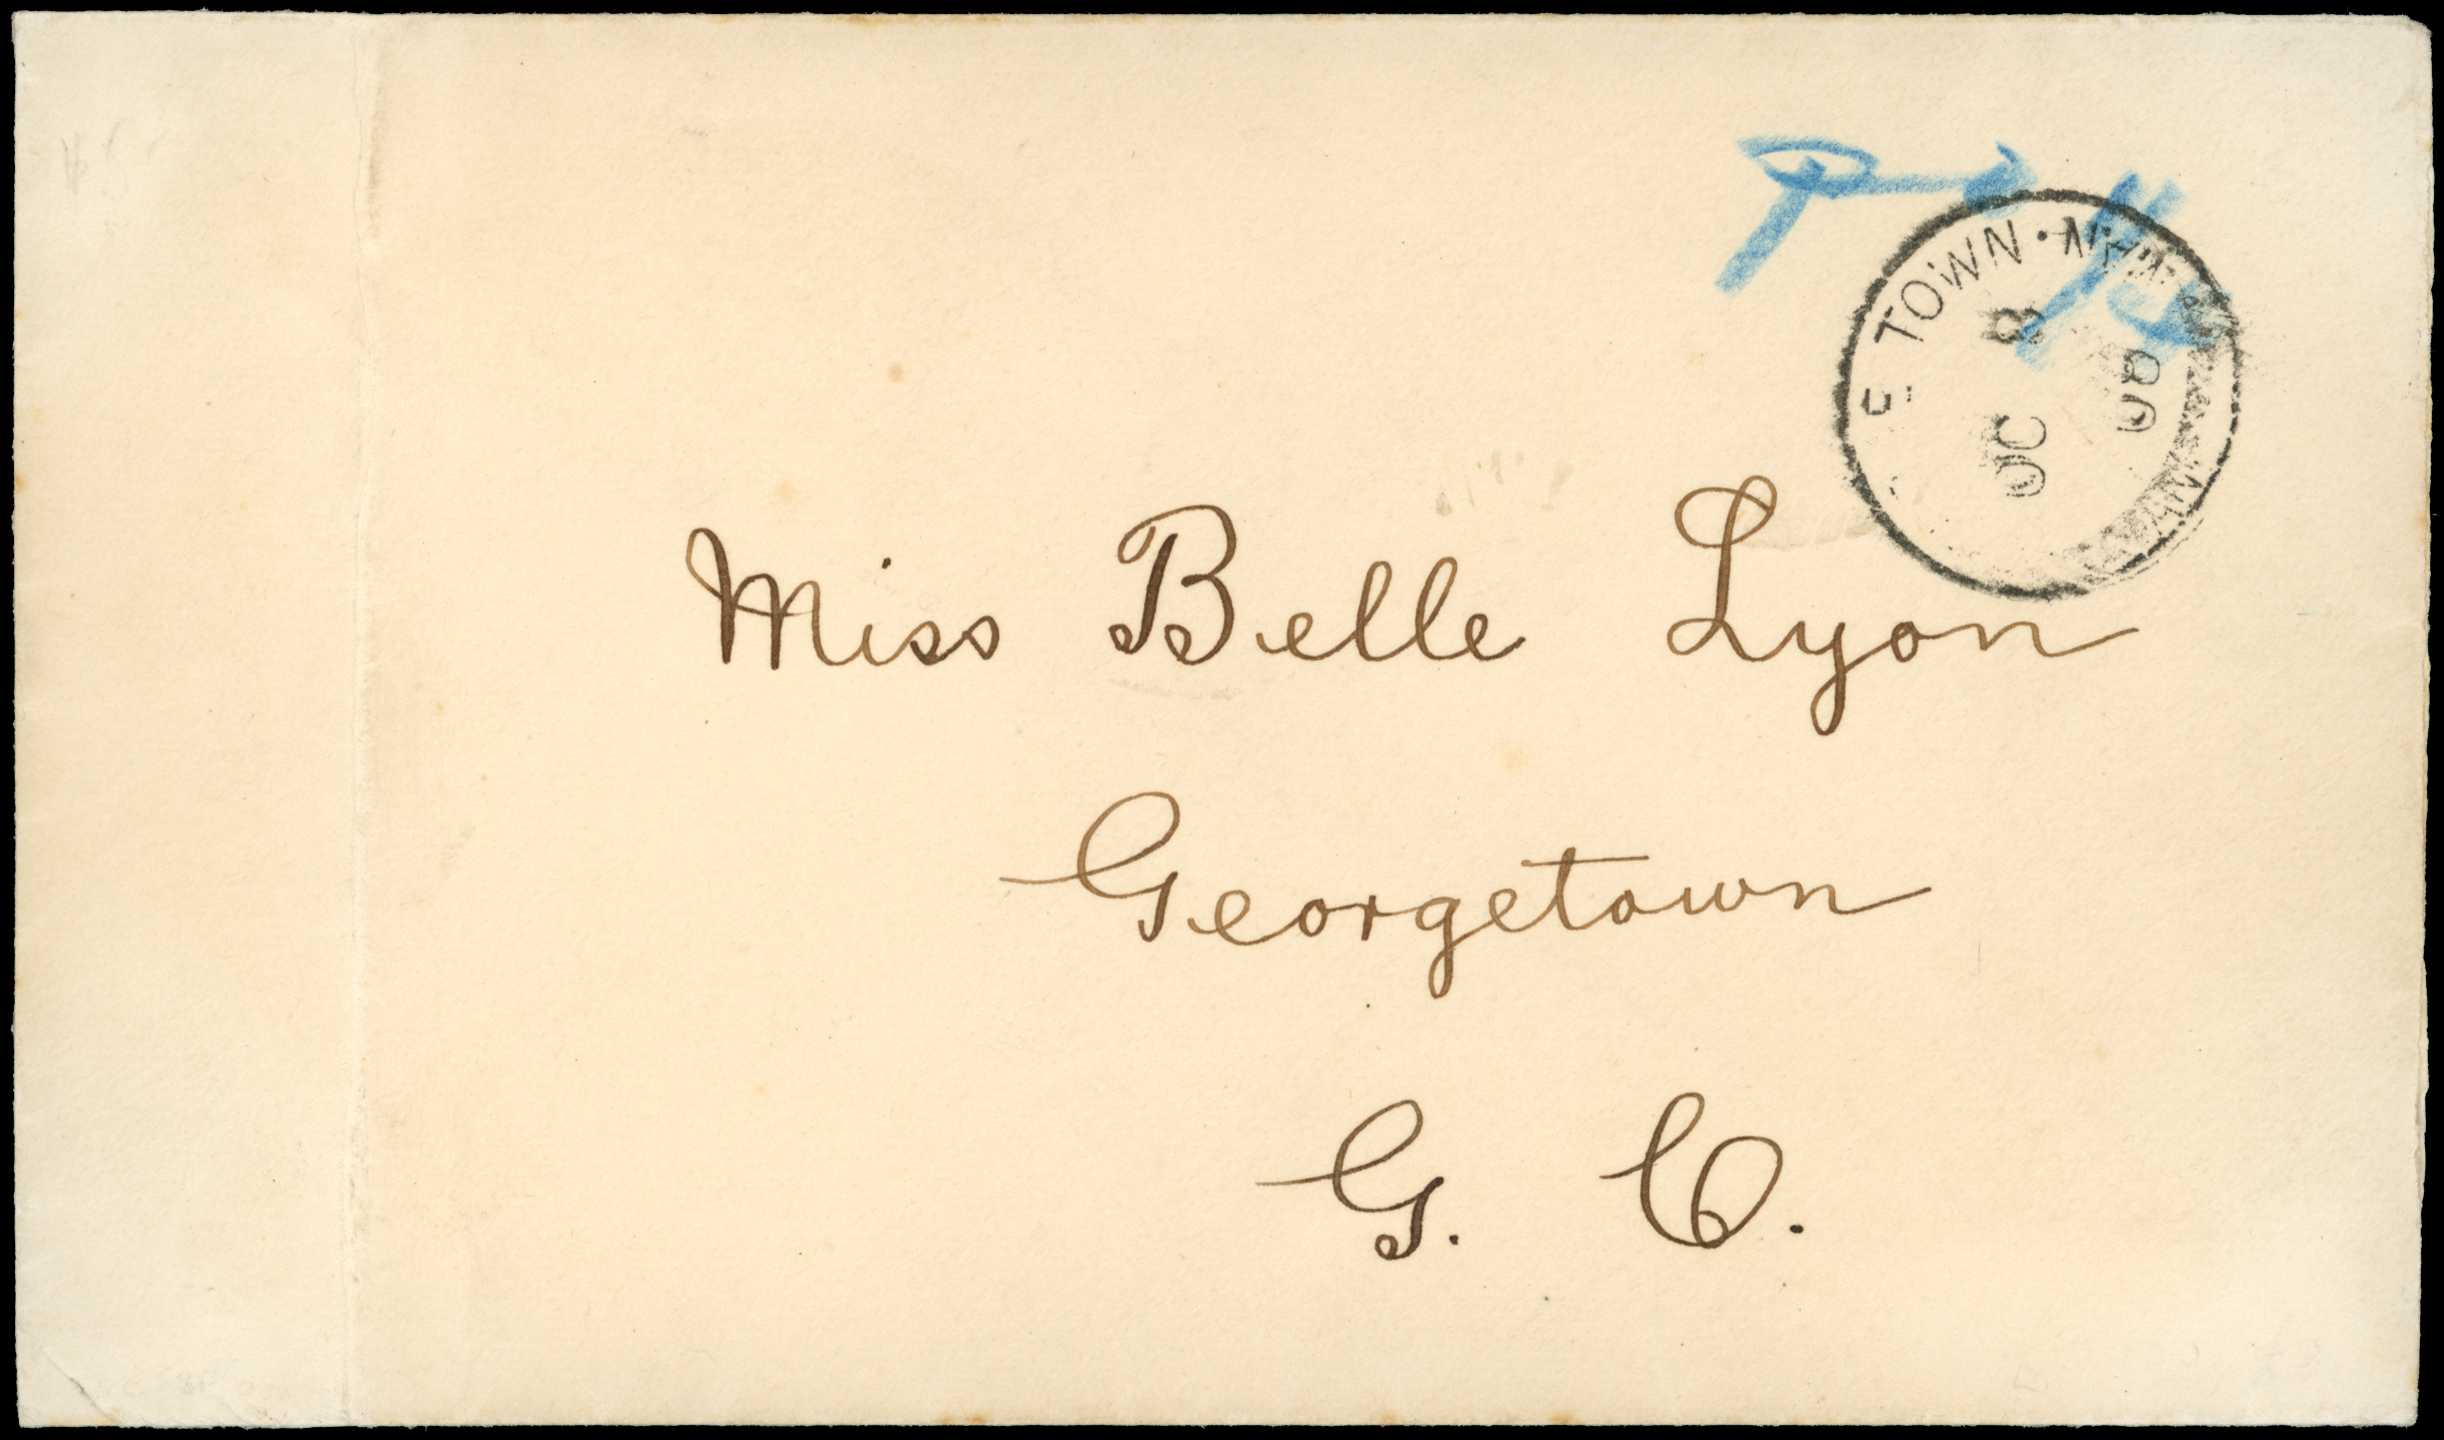 Pd 1/4
E TOWN · 
OC 8
08
Miss Belle Lyon
Georgetown
G. C.